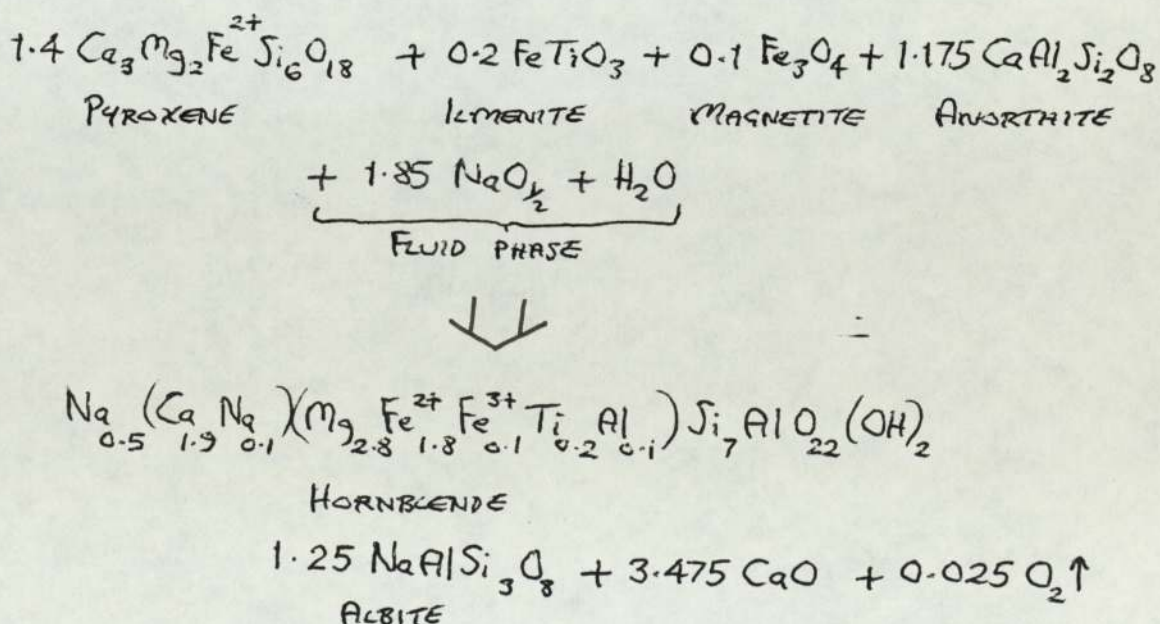 1.4 Ca₃Mg₂Fe²⁺Si₆O₁₈ + 0.2 FeTiO₃ + 0.1 Fe₃O₄ + 1.175 CaAl₂Si₂O₈
PYROXENE ILMENITE MAGNETITE ANORTHITE
+ 1.85 NaO½ + H₂O
FLUID PHASE
⇓
Na₀.₅(Ca₁.₉Na₀.₁)(Mg₂.₈Fe²⁺₁.₈Fe³⁺₀.₁Ti₀.₂Al₀.₁)Si₇AlO₂₂(OH)₂
HORNBLENDE
1.25 NaAlSi₃O₈ + 3.475 CaO + 0.025 O₂↑
ALBITE